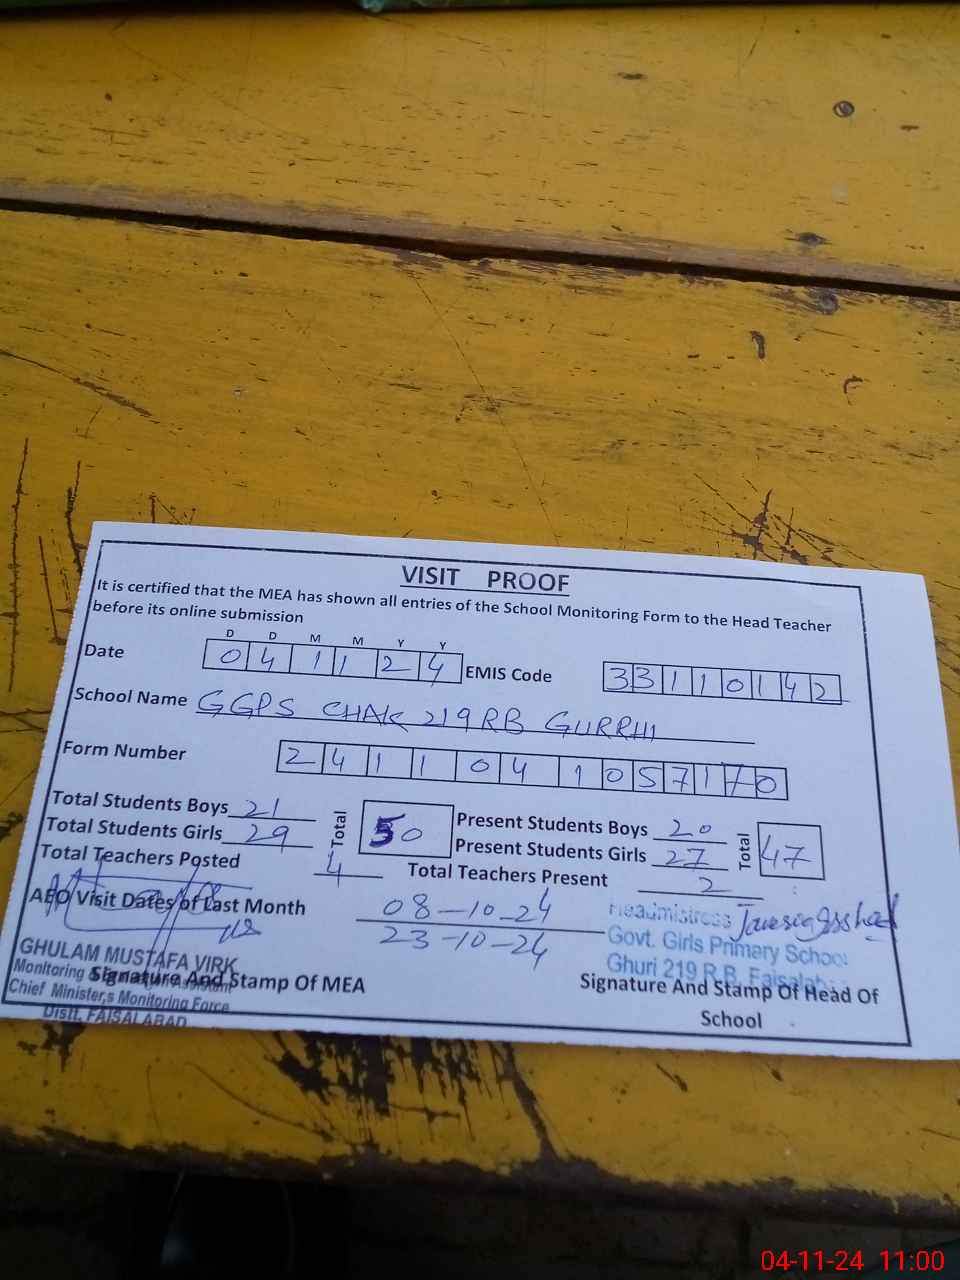 VISIT PROOF
It is certified that the MEA has shown all entries of the School Monitoring Form to the Head Teacher
before its online submission
D D M M Y Y
Date 0 4 1 1 2 4 EMIS Code 3 3 1 1 0 1 4 2
School Name GGPS CHAK 219 RB GURRHI
Form Number 2 4 1 1 0 4 1 0 5 7 1 7 0
Total Students Boys 21 Total 50 Present Students Boys 20 Total 47
Total Students Girls 29 Present Students Girls 27
Total Teachers Posted 4 Total Teachers Present 2
AEO Visit Dates of Last Month 08-10-24
23-10-24
Headmistress
Govt. Girls Primary School
Ghuri 219 R.B. Faisalabad
GHULAM MUSTAFA VIRK
Monitoring
Chief Minister,s Monitoring Force
Distt. FAISALABAD
Signature And Stamp Of MEA
Signature And Stamp Of Head Of
School
04-11-24 11:00